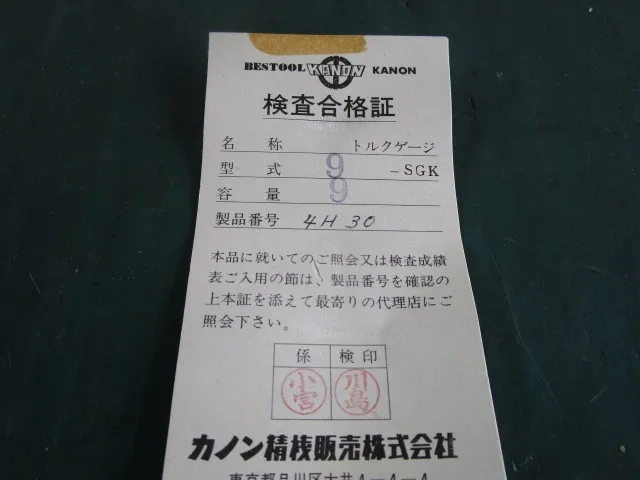 BESTOOL KANON KANON
検査合格証
名称 トルクゲージ
型式 9 -SGK
容量 9
製品番号 4H30
本品に就いてのご照会又は検査成績
表ご入用の節は、製品番号を確認の
上本証を添えて最寄りの代理店にご
照会下さい。
係 検印
小宮 川島
カノン精枝販売株式会社
東京都品川区大井4-4-4